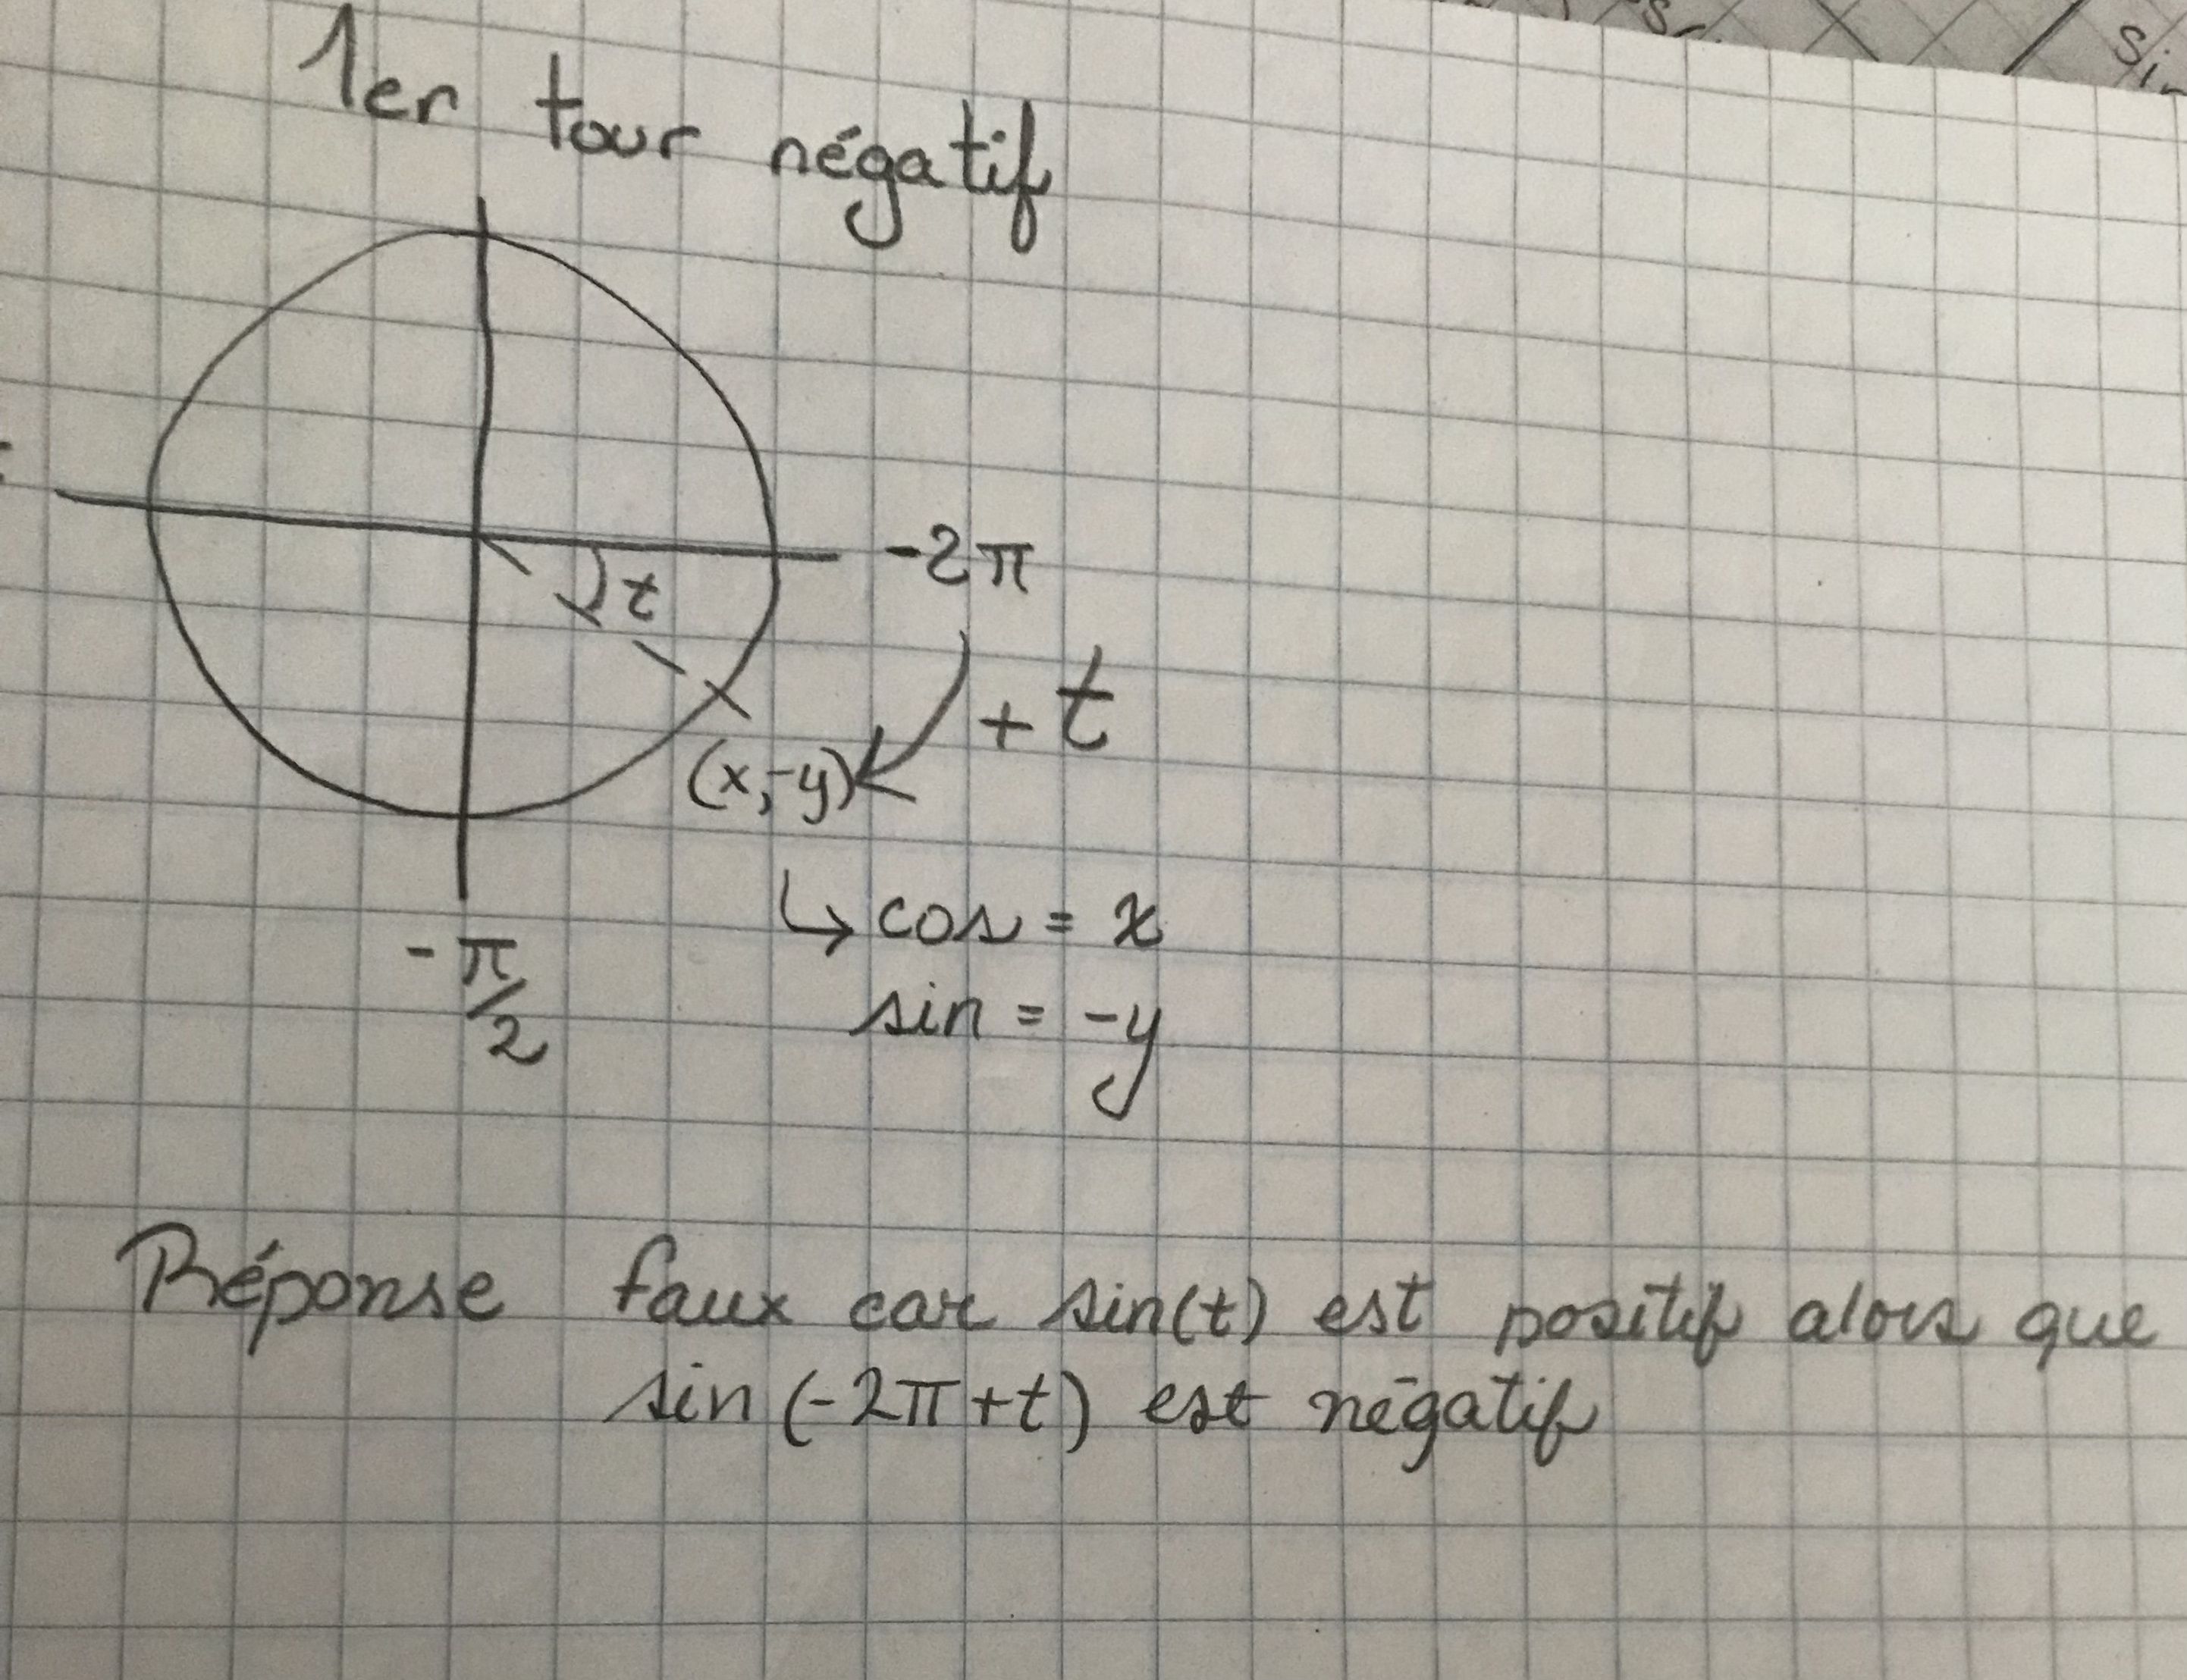 1er tour négatif
-2π
t
+ t
(x,-y)
↳ cos = x
-π/2
sin = -y
Réponse faux car sin(t) est positif alors que
sin (-2π+t) est négatif